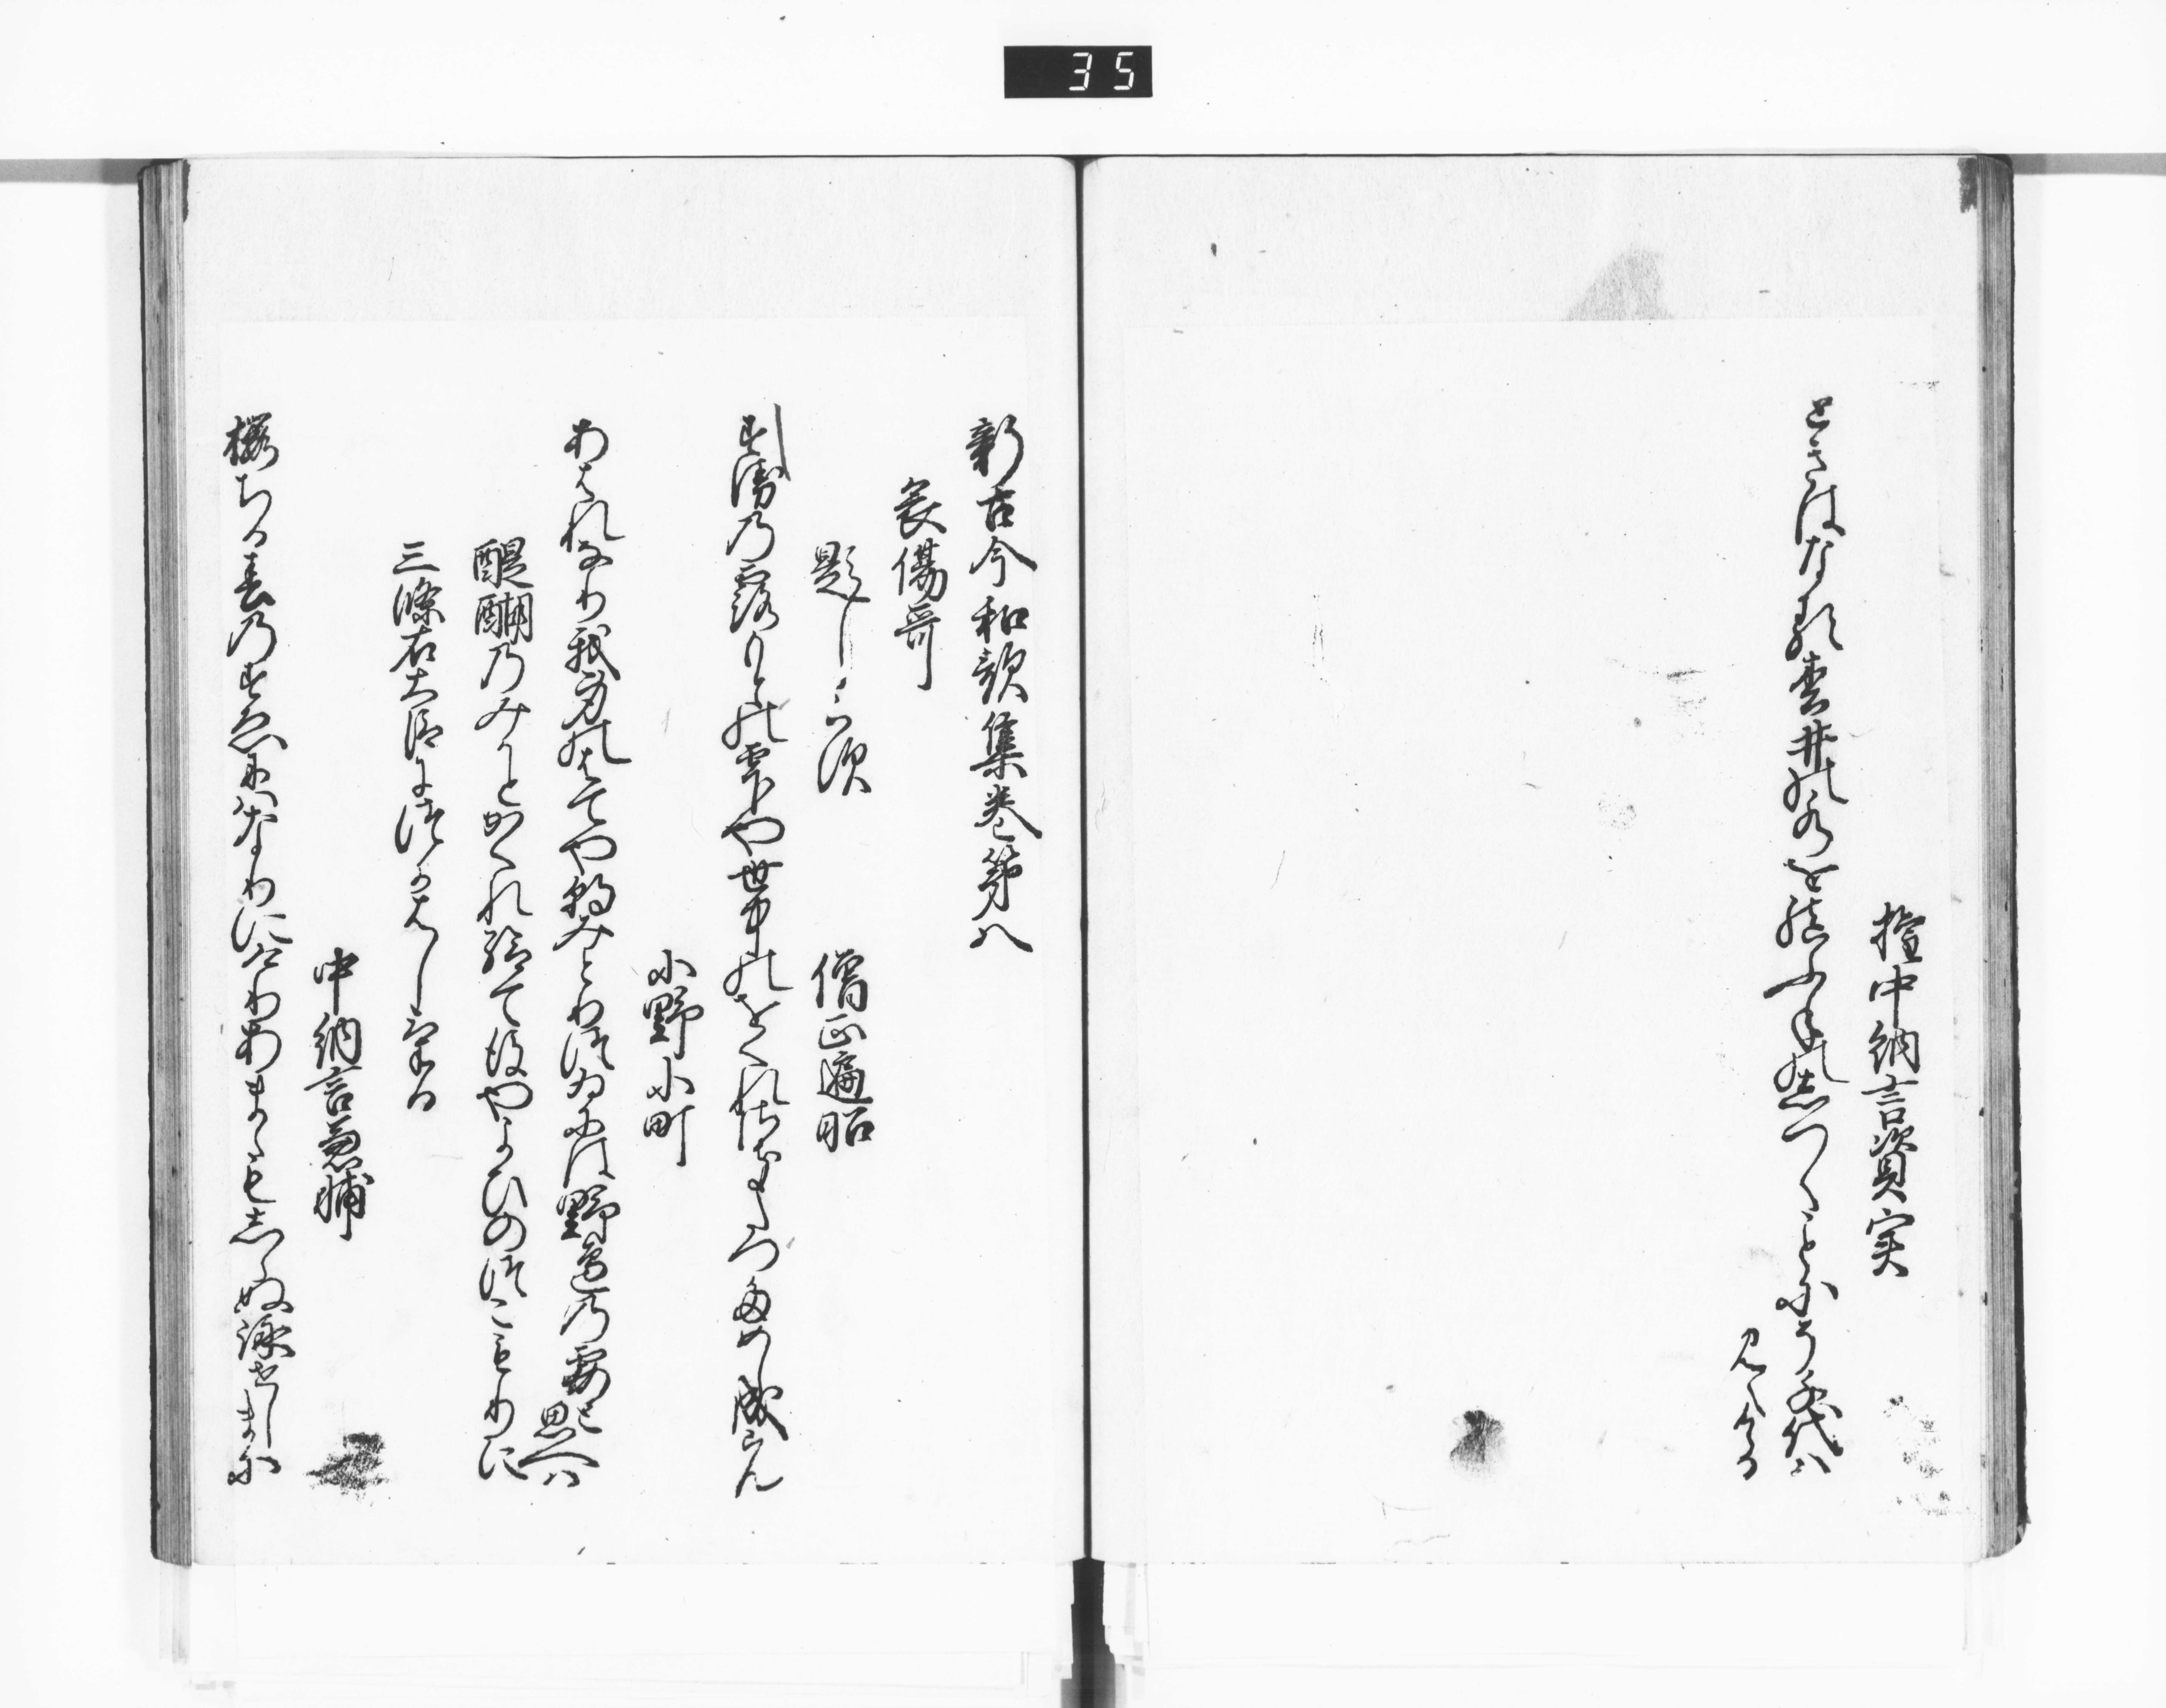 35
権中納言資実
ときはなる吉井の水を結ふ手の志つくことにそ千代ハ
見えける
新古今和歌集巻第八
哀傷哥
題しらす 僧正遍昭
すゑの露もとの雫や世中のをくれさきたつためし成らん
小野小町
あはれなり我身のはてやあさみとりつゐには野邊の霞と思へハ
醍醐のみかとかくれ給て後やよひのつこもりに
三條右大臣につかはしける
中納言兼輔
桜ちる春のすゑにハなりにけりあまゝもしらぬ詠せしまに